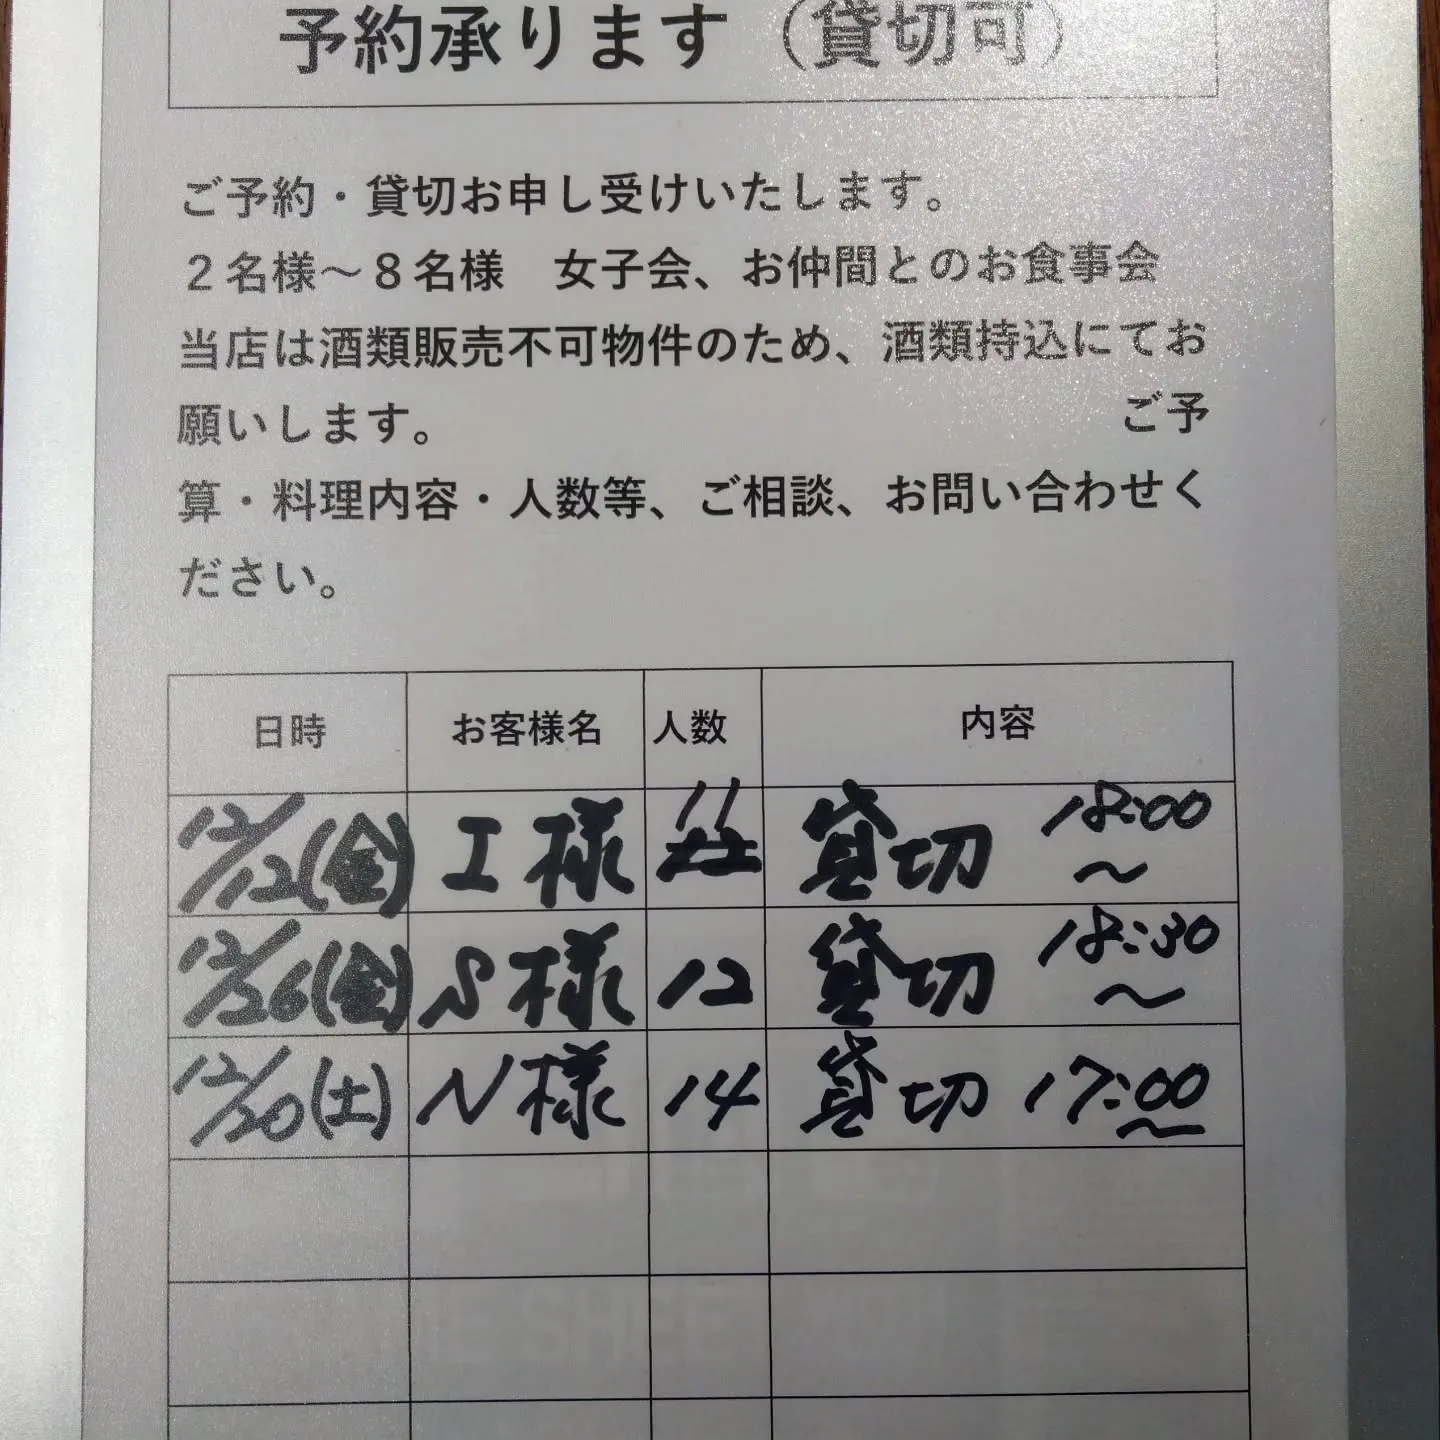 予約承ります（貸切可）
ご予約・貸切お申し受けいたします。
２名様～８名様　女子会、お仲間とのお食事会
当店は酒類販売不可物件のため、酒類持込にてお
願いします。　ご予
算・料理内容・人数等、ご相談、お問い合わせく
ださい。
日時 お客様名 人数 内容
12/12(金) I様 11 貸切 18:00～
12/26(金) S様 12 貸切 18:30～
12/20(土) N様 14 貸切 17:00～